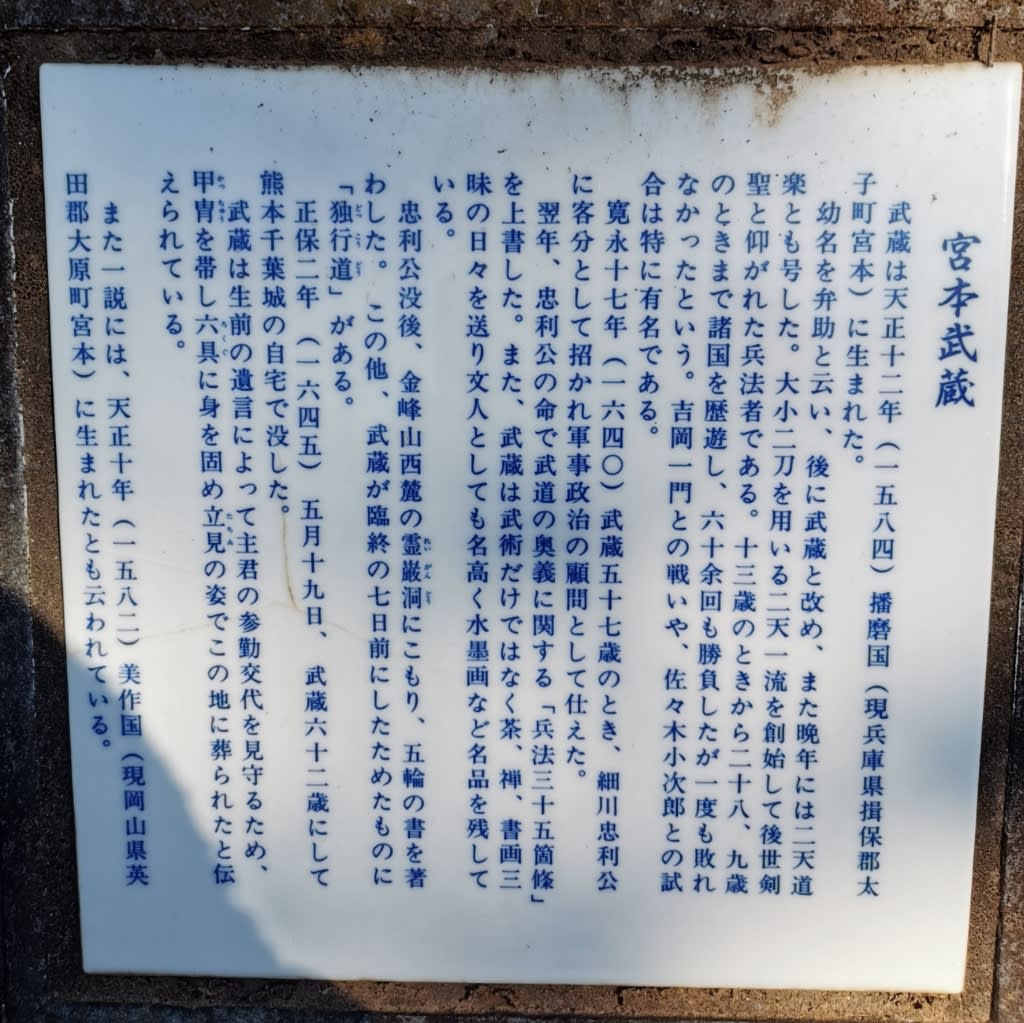 宮本武蔵
武蔵は天正十二年（一五八四）播磨国（現兵庫県揖保郡太
子町宮本）に生まれた。
幼名を弁助と云い、後に武蔵と改め、また晩年には二天道
楽とも号した。大小二刀を用いる二天一流を創始して後世剣
聖と仰がれた兵法者である。十三歳のときから二十八、九歳
のときまで諸国を歴遊し、六十余回も勝負したが一度も敗れ
なかったという。吉岡一門との戦いや、佐々木小次郎との試
合は特に有名である。
寛永十七年（一六四〇）武蔵五十七歳のとき、細川忠利公
に客分として招かれ軍事政治の顧問として仕えた。
翌年、忠利公の命で武道の奥義に関する「兵法三十五箇條」
を上書した。また、武蔵は武術だけではなく茶、禅、書画三
昧の日々を送り文人としても名高く水墨画など名品を残して
いる。
忠利公没後、金峰山西麓の霊巌洞にこもり、五輪の書を著
わした。この他、武蔵が臨終の七日前にしたためたものに
「独行道」がある。
正保二年（一六四五）五月十九日、武蔵六十二歳にして
熊本千葉城の自宅で没した。
武蔵は生前の遺言によって主君の参勤交代を見守るため、
甲冑を帯し六具に身を固め立見の姿でこの地に葬られたと伝
えられている。
また一説には、天正十年（一五八二）美作国（現岡山県英
田郡大原町宮本）に生まれたとも云われている。